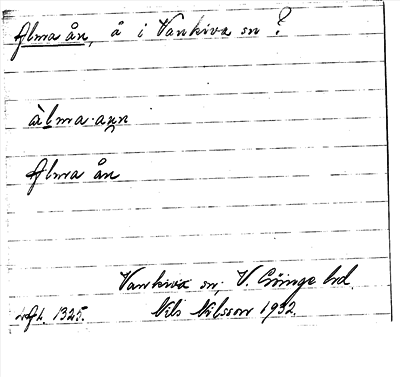 Alma ån, å i Vankiva sn ?
àlma·aun
Alma ån
Vankiva sn, V. Göinge hd.
Nils Nilsson 1932.
1325.